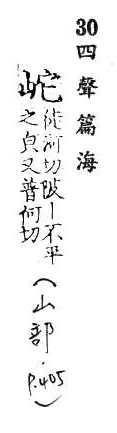 30 四聲篇海
岮 徒河切陂丨不平
之皃又普何切
(山部. p.405)